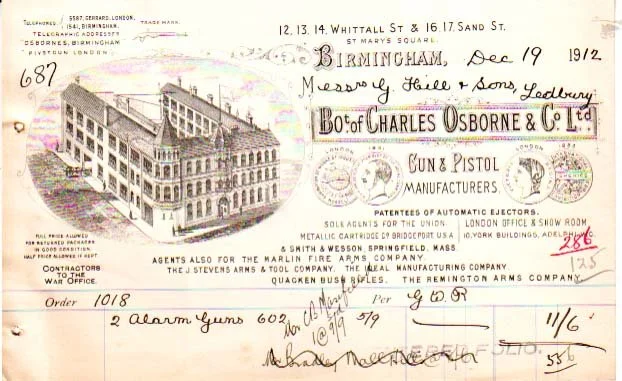 TELEPHONES { 5587, GERRARD, LONDON.
1541, BIRMINGHAM.
TRADE MARK.
TELEGRAPHIC ADDRESSES
OSBORNES, BIRMINGHAM
LONDON.
687
12, 13, 14, WHITTALL ST & 16, 17, SAND ST.
ST MARYS SQUARE.
BIRMINGHAM, Dec 19 1912
Messrs G. Hill & Sons, Ledbury
Bot. of CHARLES OSBORNE & Co. Ltd.
LONDON
LONDON
GUN & PISTOL
MANUFACTURERS.
PATENTEES OF AUTOMATIC EJECTORS.
SOLE AGENTS FOR THE UNION
METALLIC CARTRIDGE Co BRIDGEPORT U.S.A
& SMITH & WESSON, SPRINGFIELD, MASS.
LONDON OFFICE & SHOW ROOM
10, YORK BUILDINGS, ADELPHI, W.C.
286
125
AGENTS ALSO FOR THE MARLIN FIRE ARMS COMPANY.
THE J. STEVENS ARMS & TOOL COMPANY. THE IDEAL MANUFACTURING COMPANY.
QUACKENBUSH RIFLES. THE REMINGTON ARMS COMPANY.
FULL PRICE ALLOWED
FOR RETURNED PACKAGES
IN GOOD CONDITION.
HALF PRICE ALLOWED IF KEPT.
CONTRACTORS
TO THE
WAR OFFICE.
Order 1018 Per G W R
2 Alarm Guns 602 5/9 11/6
1 @ 9/9
FOLIO.
556